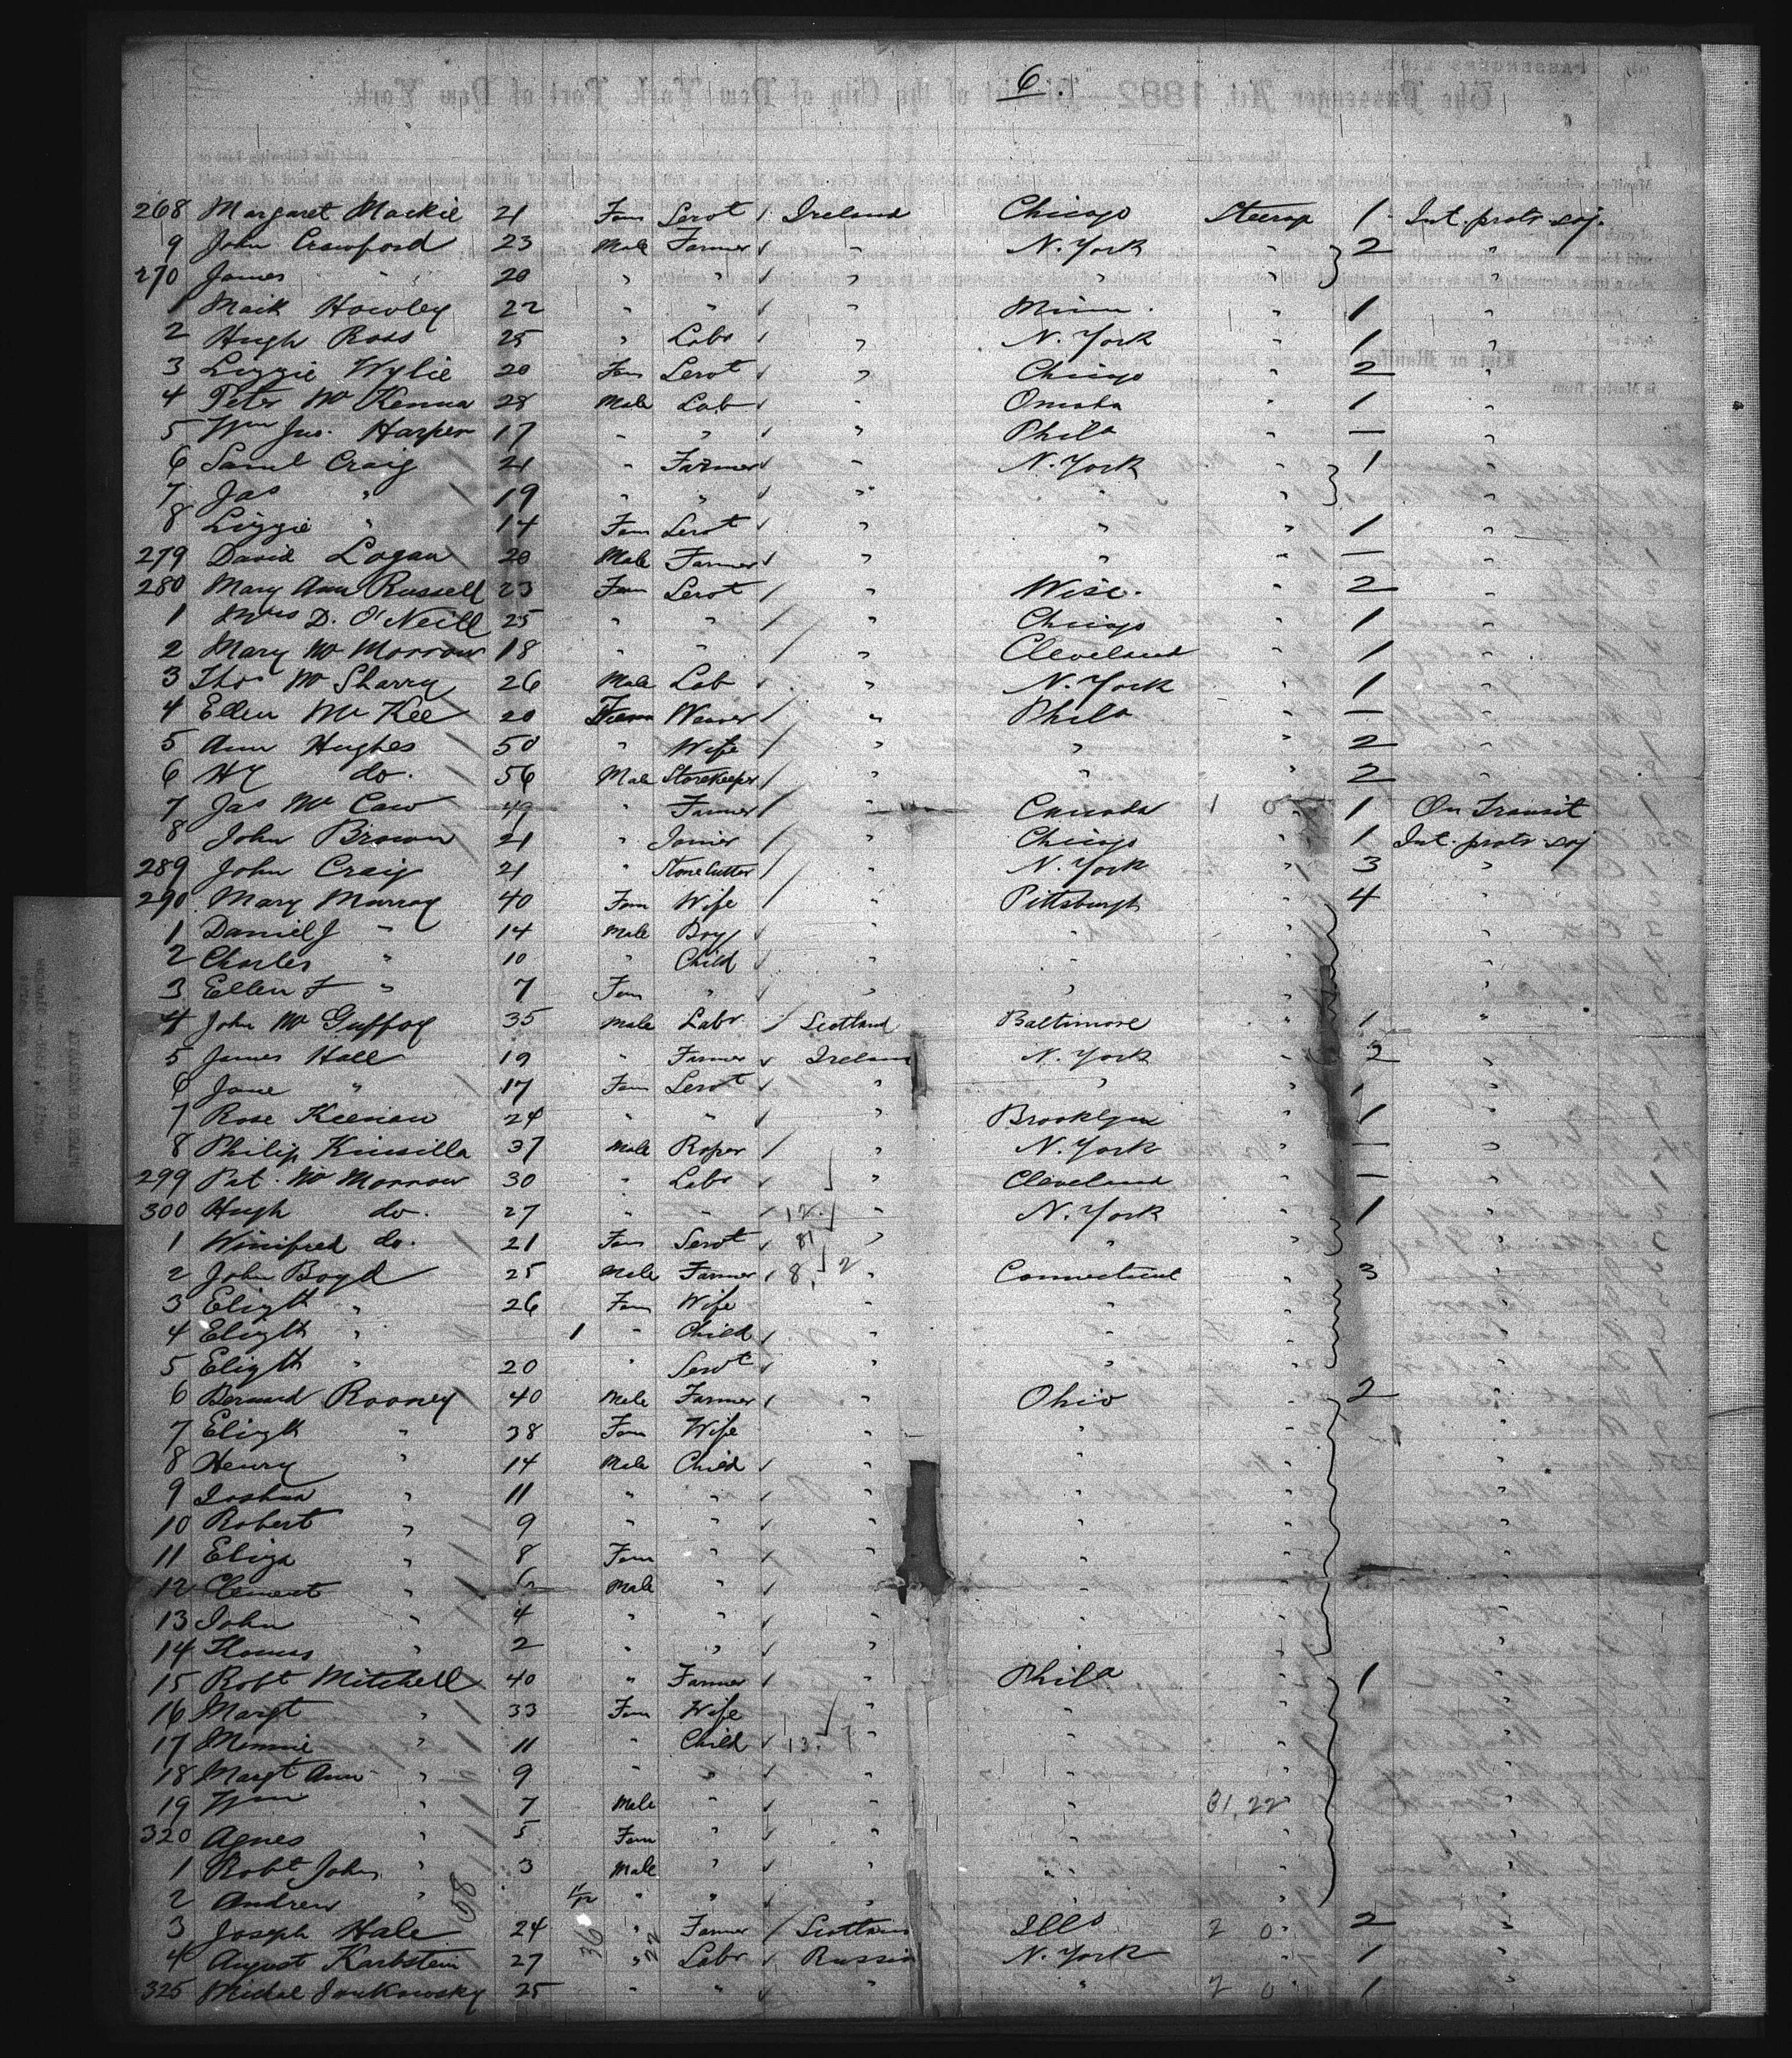 6.
268 Margaret Mackie 21 Fem Servt / Ireland Chicago Steerage 1 Int. protr. soj.
9 John Crawford 23 Male Farmer / " N. York " 2 "
270 James " 20 " " / " " " "
1 Mack Howley 22 " " / " Minn. " 1 "
2 Hugh Ross 25 " Labr / " N. York " 1 "
3 Lizzie Wylie 20 Fem Servt / " Chicago " 2 "
4 Peter McKenna 28 Male Lab / " Omaha " 1 "
5 Wm Jno. Harper 17 " " / " Phila " — "
6 Saml Craig 21 " Farmer / " N. York " 1 "
7 Jas " 19 " " / " " " "
8 Lizzie " 14 Fem Servt / " " " 1 "
279 David Logan 20 Male Farmer / " " " — "
280 Mary Ann Russell 23 Fem Servt / " Wisc. " 2 "
1 Mrs D. O'Neill 25 " " / " Chicago " 1 "
2 Mary McMorrow 18 " " / " Cleveland " 1 "
3 Thos McSharry 26 Male Lab / " N. York " 1 "
4 Ellen McKee 20 Fem Weaver / " Phila " — "
5 Ann Hughes 50 " Wife / " " " 2 "
6 Hy do. 56 Male Storekeeper / " " " 2 "
7 Jas McCaw 49 " Farmer / " Canada 1 0 " 1 On Transit
8 John Brown 21 " Joiner / " Chicago " 1 Int. protr. soj
289 John Craig 21 " Stonecutter / " N. York " 3 "
290 Mary Murray 40 Fem Wife / " Pittsburgh " 4 "
1 Daniel J " 14 Male Boy / " " " "
2 Charles " 10 " Child / " " " "
3 Ellen F " 7 Fem " / " " " "
4 John McGuffog 35 Male Labr / Scotland Baltimore " 1 "
5 James Hall 19 " Farmer / Ireland N. York " 2 "
6 Jane " 17 Fem Servt / " " " 1 "
7 Rose Keenan 24 " " / " Brooklyn " 1 "
8 Philip Kinsilla 37 Male Roper / " N. York " — "
299 Pat. McMorrow 30 " Labr / " Cleveland " — "
300 Hugh do. 27 " " 12. " N. York " 1 "
1 Winifred do. 21 Fem Servt / 81 " " " "
2 John Boyd 25 Male Farmer / 8, 2 " Connecticut " 3 "
3 Elizth " 26 Fem Wife " " " "
4 Elizth " 1 " Child / " " " "
5 Elizth " 20 " Servt / " " " "
6 Bernard Rooney 40 Male Farmer / " Ohio " 2 "
7 Elizth " 38 Fem Wife " " " "
8 Henry " 14 Male Child / " " " "
9 Joshua " 11 " " / " " " "
10 Robert " 9 " " / " " " "
11 Eliza " 8 Fem " / " " " "
12 Clement " 6 Male " / " " " "
13 John " 4 " " / " " " "
14 Thomas " 2 " " / " " " "
15 Robt Mitchell 40 " Farmer / " Phila " 1 "
16 Margt " 33 Fem Wife " " " "
17 Minnie " 11 " Child / 13. " " " "
18 Margt Ann " 9 " " / " " " "
19 Wm " 7 Male " / " " 31,22 "
320 Agnes " 5 Fem " / " " " "
1 Robt John " 3 Male " / " " " "
2 Andrew " 11/12 " " " " " "
3 Joseph Hale 24 " Farmer / Scotland Ills 2 0 " 2 "
4 August Karbstein 27 " Labr / Russia N. York " 1 "
325 Michal Jankowsky 25 " " / " " 2 0 " 1 "